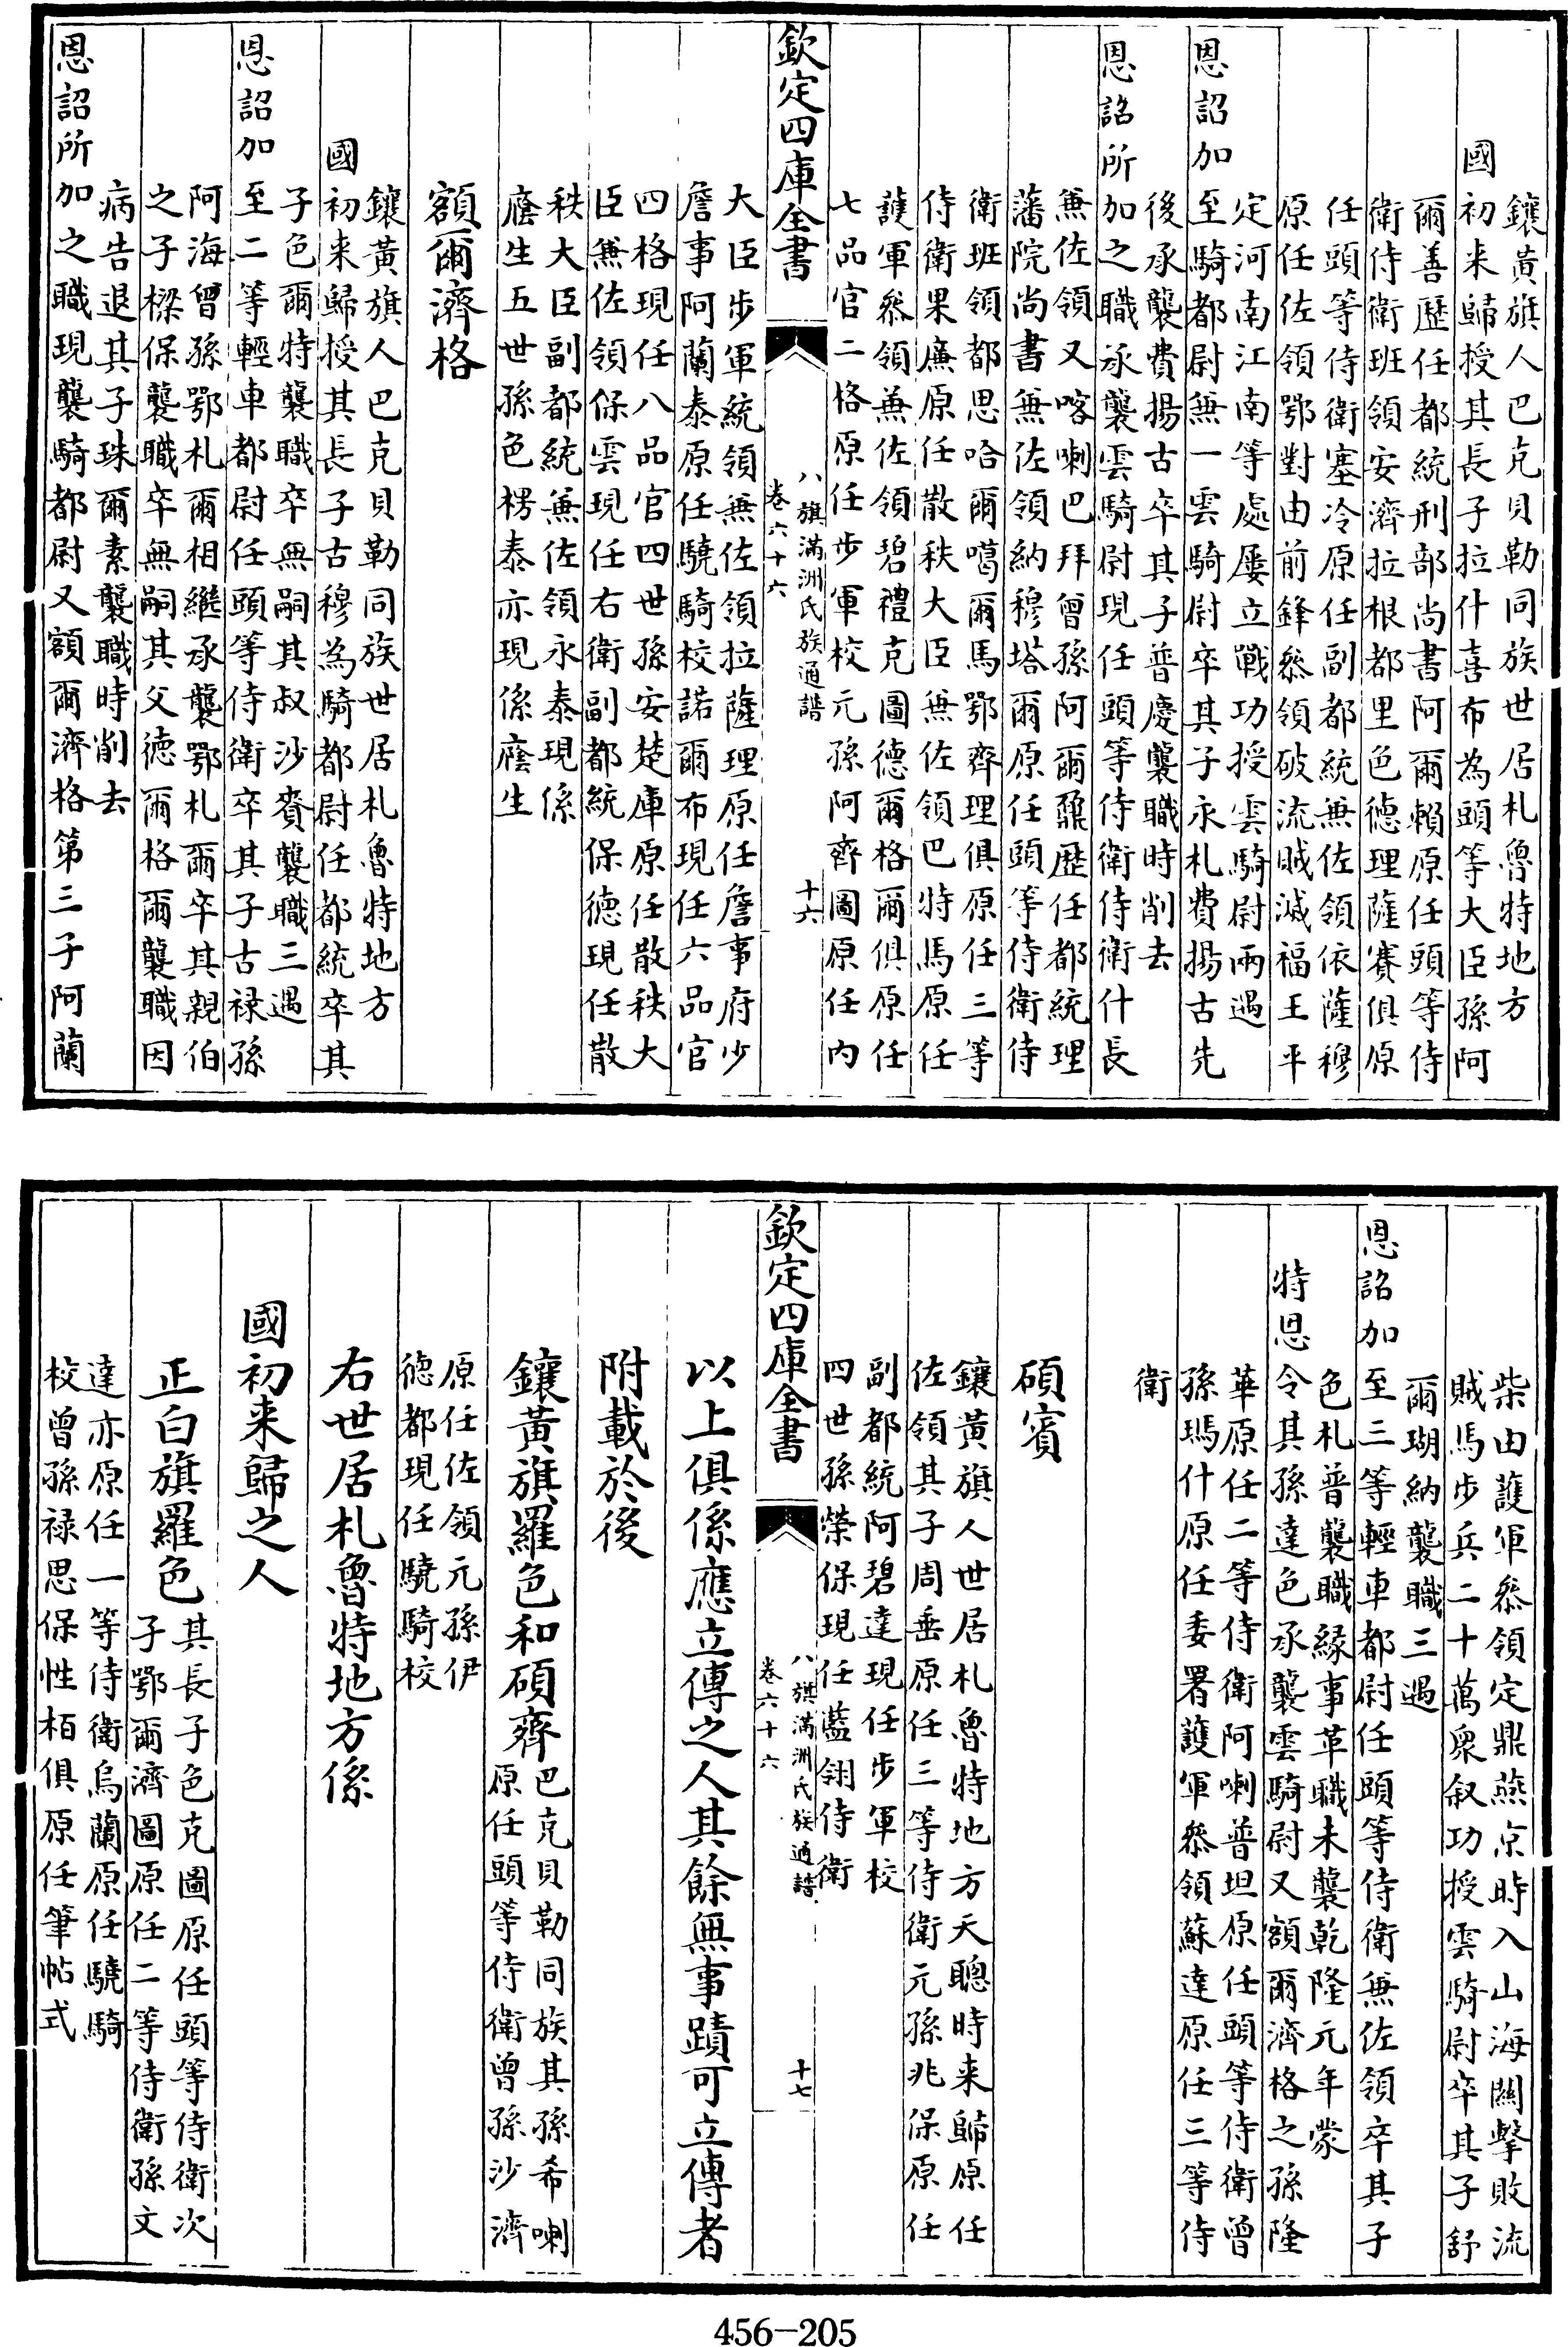 鑲黃旗人巴克貝勒同族世居札魯特地方
國初来歸授其長子拉什喜布為頭等大臣孫阿
爾善歷任都統刑部尚書阿爾賴原任頭等侍
衛侍衛班領安濟拉根都里色德理薩賽俱原
任頭等侍衛塞冷原任副都統兼佐領依薩穆
原任佐領鄂對由前鋒叅領破流賊滅福王平
定河南江南等處屢立戰功授雲騎尉兩遇
恩詔加至騎都尉無一雲騎尉卒其子永札費揚古先
後承襲費揚古卒其子普慶襲職時削去
恩詔所加之職承襲雲騎尉現任頭等侍衛侍衛什長
兼佐領又喀喇巴拜曾孫阿爾鼐歷任都統理
藩院尚書無佐領納穆塔爾原任頭等侍衛侍
衛班領都思哈爾噶爾馬鄂齊理俱原任三等
侍衛果廉原任散秩大臣無佐領巴特馬原任
護軍叅領兼佐領碧禮克圖德爾格爾俱原任
七品官二格原任步軍校元孫阿齊圖原任内
欽定四庫全書
八旗滿洲氏族通譜
卷六十六
十六
大臣步軍統領無佐領拉薩理原任詹事府少
詹事阿蘭泰原任驍騎校諾爾布現任六品官
四格現任八品官四世孫安楚庫原任散秩大
臣兼佐領保雲現任右衛副都統保德現任散
秩大臣副都統兼佐領永泰現係
廕生五世孫色楞泰亦現係廕生
額爾濟格
鑲黃旗人巴克貝勒同族世居札魯特地方
國初来歸授其長子古穆為騎都尉任都統卒其
子色爾特襲職卒無嗣其叔沙賚襲職三遇
恩詔加至二等輕車都尉任頭等侍衛卒其子古禄孫
阿海曾孫鄂札爾相繼承襲鄂札爾卒其親伯
之子樑保襲職卒無嗣其父德爾格爾襲職因
病告退其子珠爾素襲職時削去
恩詔所加之職現襲騎都尉又額爾濟格第三子阿蘭
柴由護軍叅領定鼎燕京時入山海關擊敗流
賊馬步兵二十萬衆叙功授雲騎尉卒其子舒
爾瑚納襲職三遇
恩詔加至三等輕車都尉任頭等侍衛無佐領卒其子
色札普襲職緣事革職未襲乾隆元年蒙
特恩令其孫達色承襲雲騎尉又額爾濟格之孫隆
華原任二等侍衛阿喇普坦原任頭等侍衛曾
孫瑪什原任委署護軍叅領蘇達原任三等侍
衛
碩賓
鑲黃旗人世居札魯特地方天聰時来歸原任
佐領其子周垂原任三等侍衛元孫兆保原任
副都統阿碧達現任步軍校
四世孫榮保現任藍翎侍衛
欽定四庫全書
八旗滿洲氏族通譜
卷六十六
十七
以上俱係應立傳之人其餘無事蹟可立傳者
附載於後
鑲黃旗羅色和碩齊巴克貝勒同族其孫希喇
原任頭等侍衛曾孫沙濟
原任佐領元孫伊
德都現任驍騎校
右世居札魯特地方係
國初来歸之人
正白旗羅色其長子色克圖原任頭等侍衛次
子鄂爾濟圖原任二等侍衛孫文
達亦原任一等侍衛烏蘭原任驍騎
校曾孫禄思保性栢俱原任筆帖式
456-205